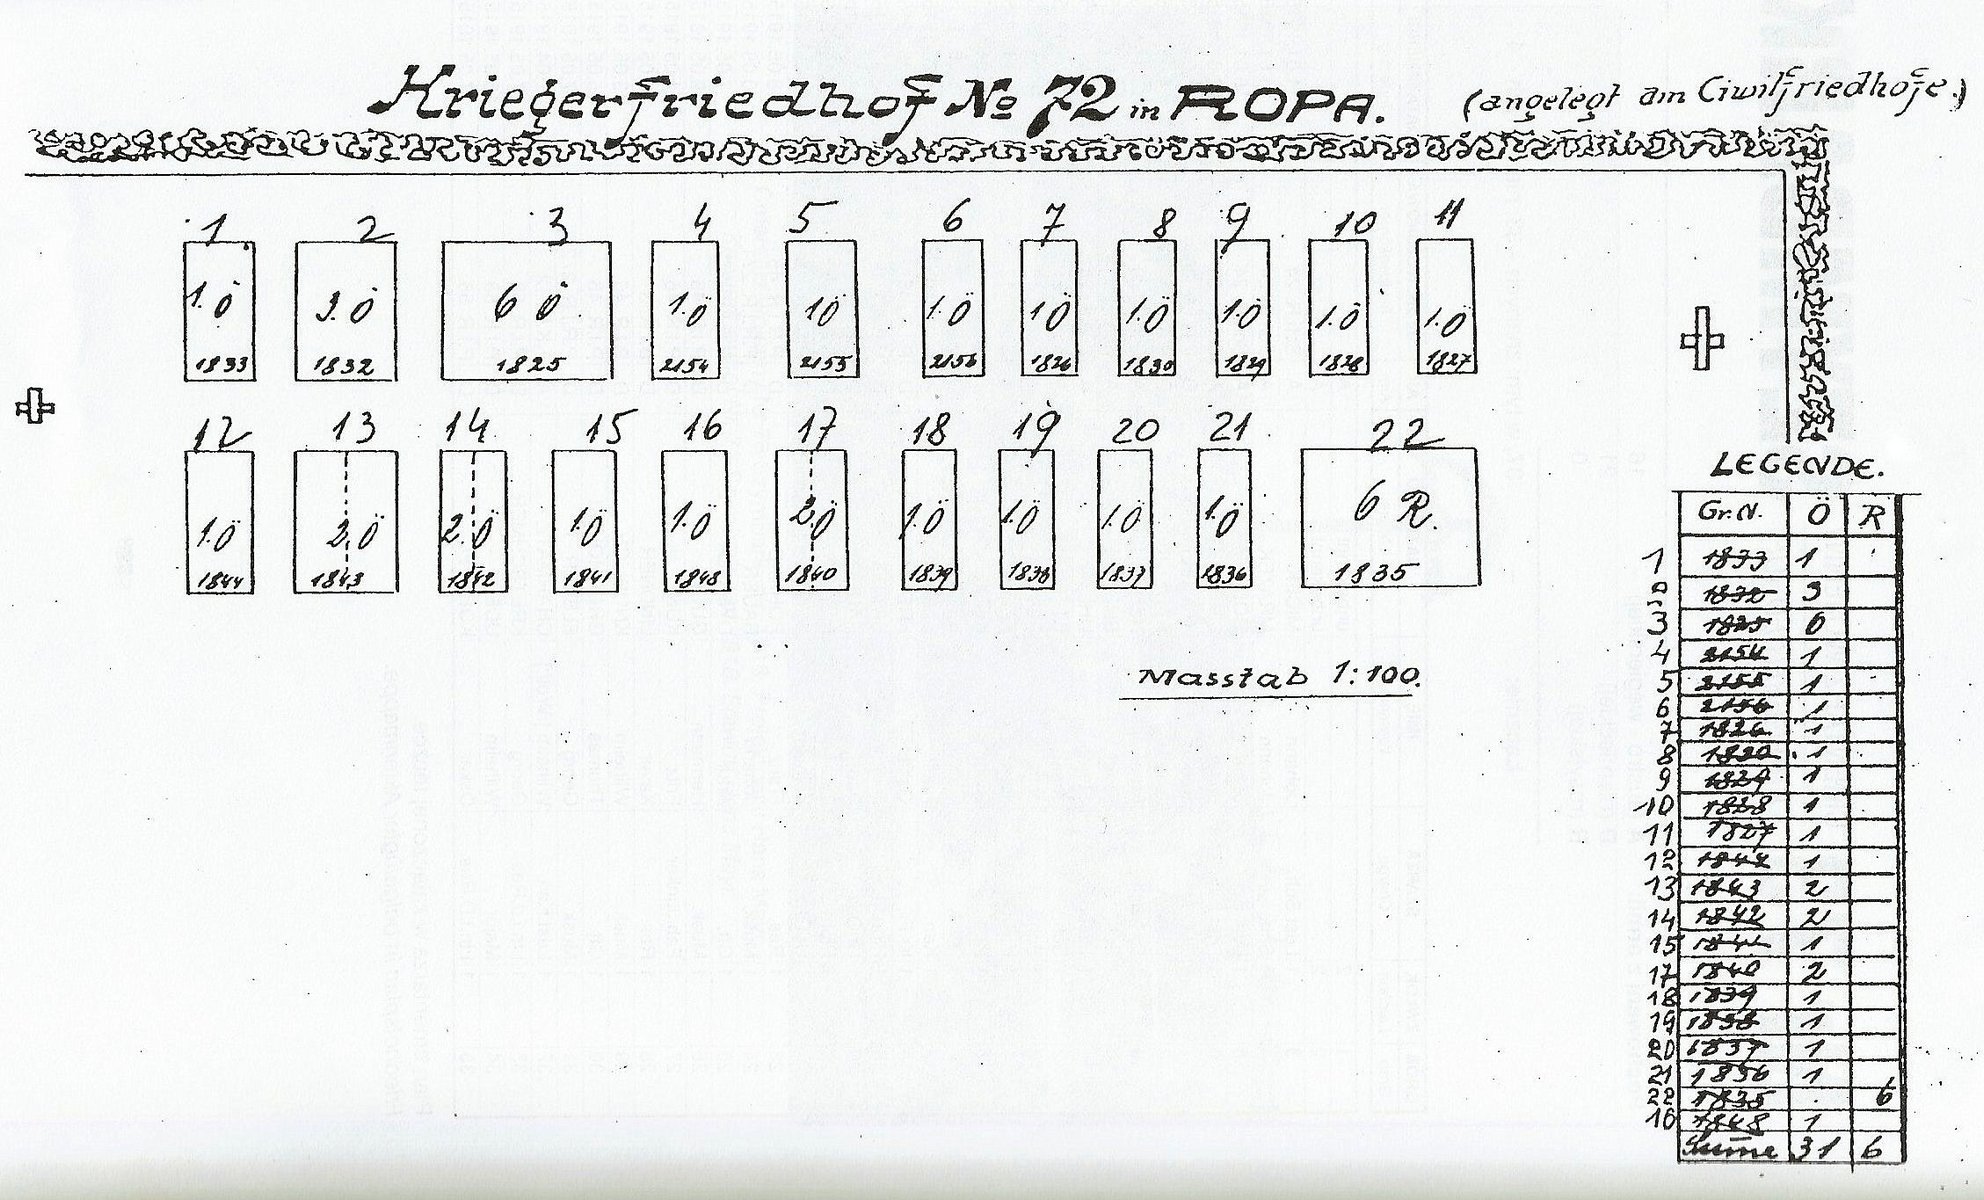 Kriegerfriedhof No 72 in ROPA. (angelegt am Civilfriedhofe.)
1 2 3 4 5 6 7 8 9 10 11
1.Ö 3.Ö 6 Ö 1.Ö 1Ö 1.Ö 1Ö 1.Ö 1.Ö 1.Ö 1.Ö
1833 1832 1825 2154 2155 2156 1826 1830 1829 1828 1827
12 13 14 15 16 17 18 19 20 21 22
1.Ö 2.Ö 2.Ö 1.Ö 1.Ö 2.Ö 1.Ö 1.Ö 1.Ö 1.Ö 6 R.
1844 1843 1842 1841 1848 1840 1839 1838 1837 1836 1835
Masstab 1:100.
LEGENDE.
Gr.N. Ö R
1 1833 1
2 1832 3
3 1825 6
4 2154 1
5 2155 1
6 2156 1
7 1826 1
8 1830 1
9 1829 1
10 1828 1
11 1827 1
12 1844 1
13 1843 2
14 1842 2
15 1841 1
17 1840 2
18 1839 1
19 1838 1
20 1837 1
21 1836 1
22 1835 6
16 1848 1
Sume 31 6